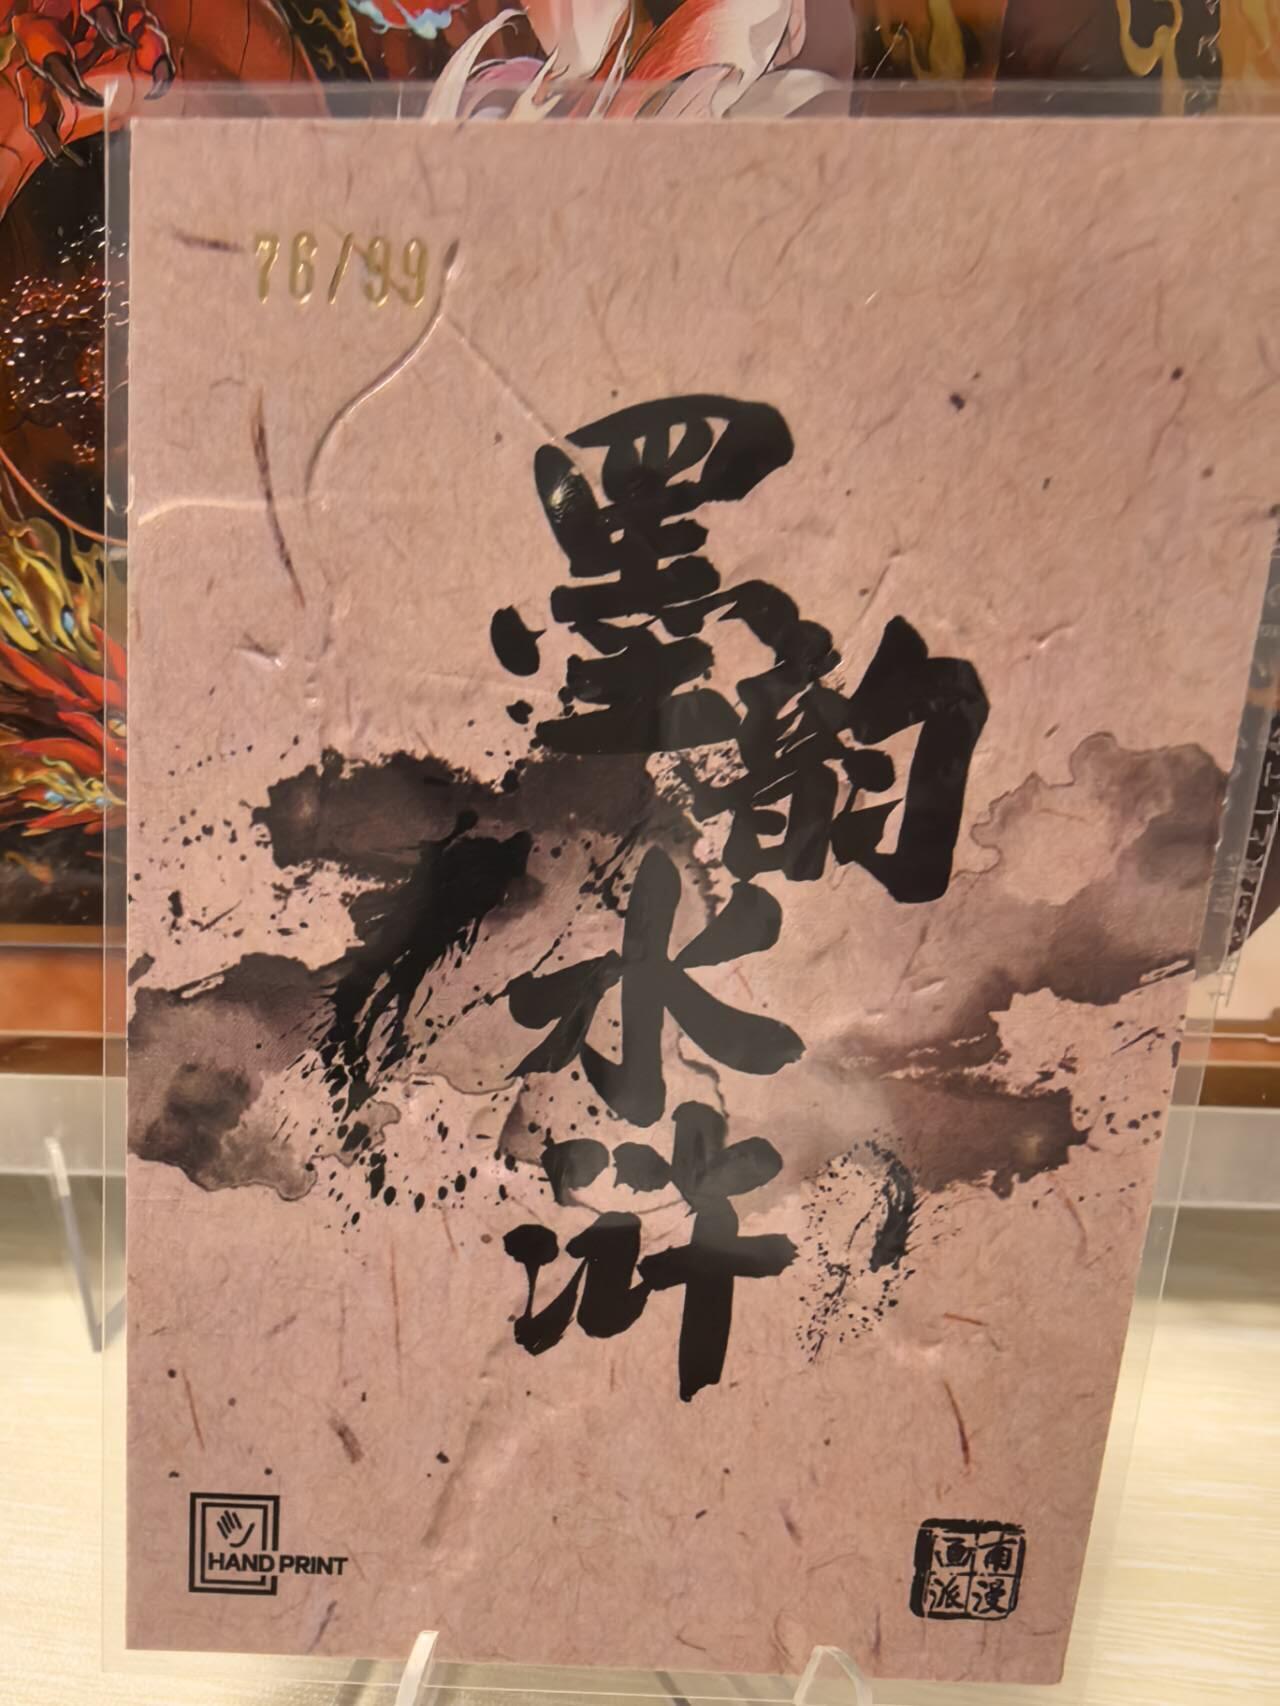 76/99
墨韵
水浒
HAND PRINT
甫漫
画派